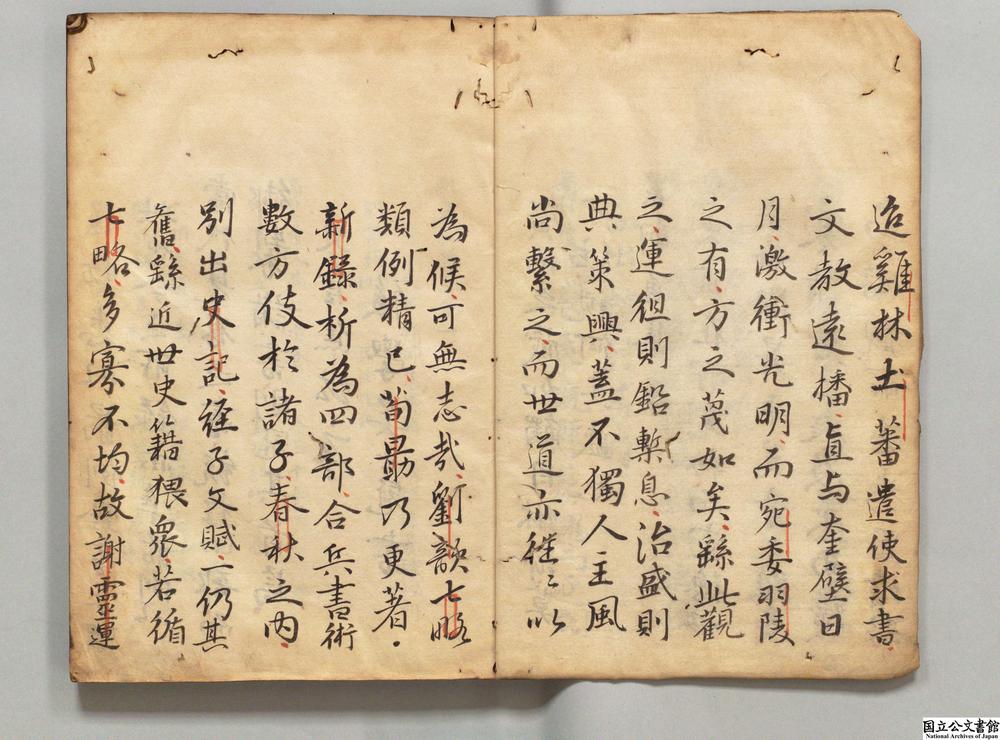 迨雞林土蕃遣使求書
文教遠播直与奎壁日
月激衝光明而宛委羽陵
之有方之蔑如矣繇此觀
之運徂則鉛槧息治盛則
典策興蓋不獨人主風
尚繫之而世道亦往〻以
為候可無志哉劉歆七略
類例精已荀勗乃更著
新錄析為四部合兵書術
數方伎於諸子春秋之內
別出史記經子文賦一仍其
舊繇近世史籍猥眾若循
七略多寡不均故謝靈運
国立公文書館
National Archives of Japan